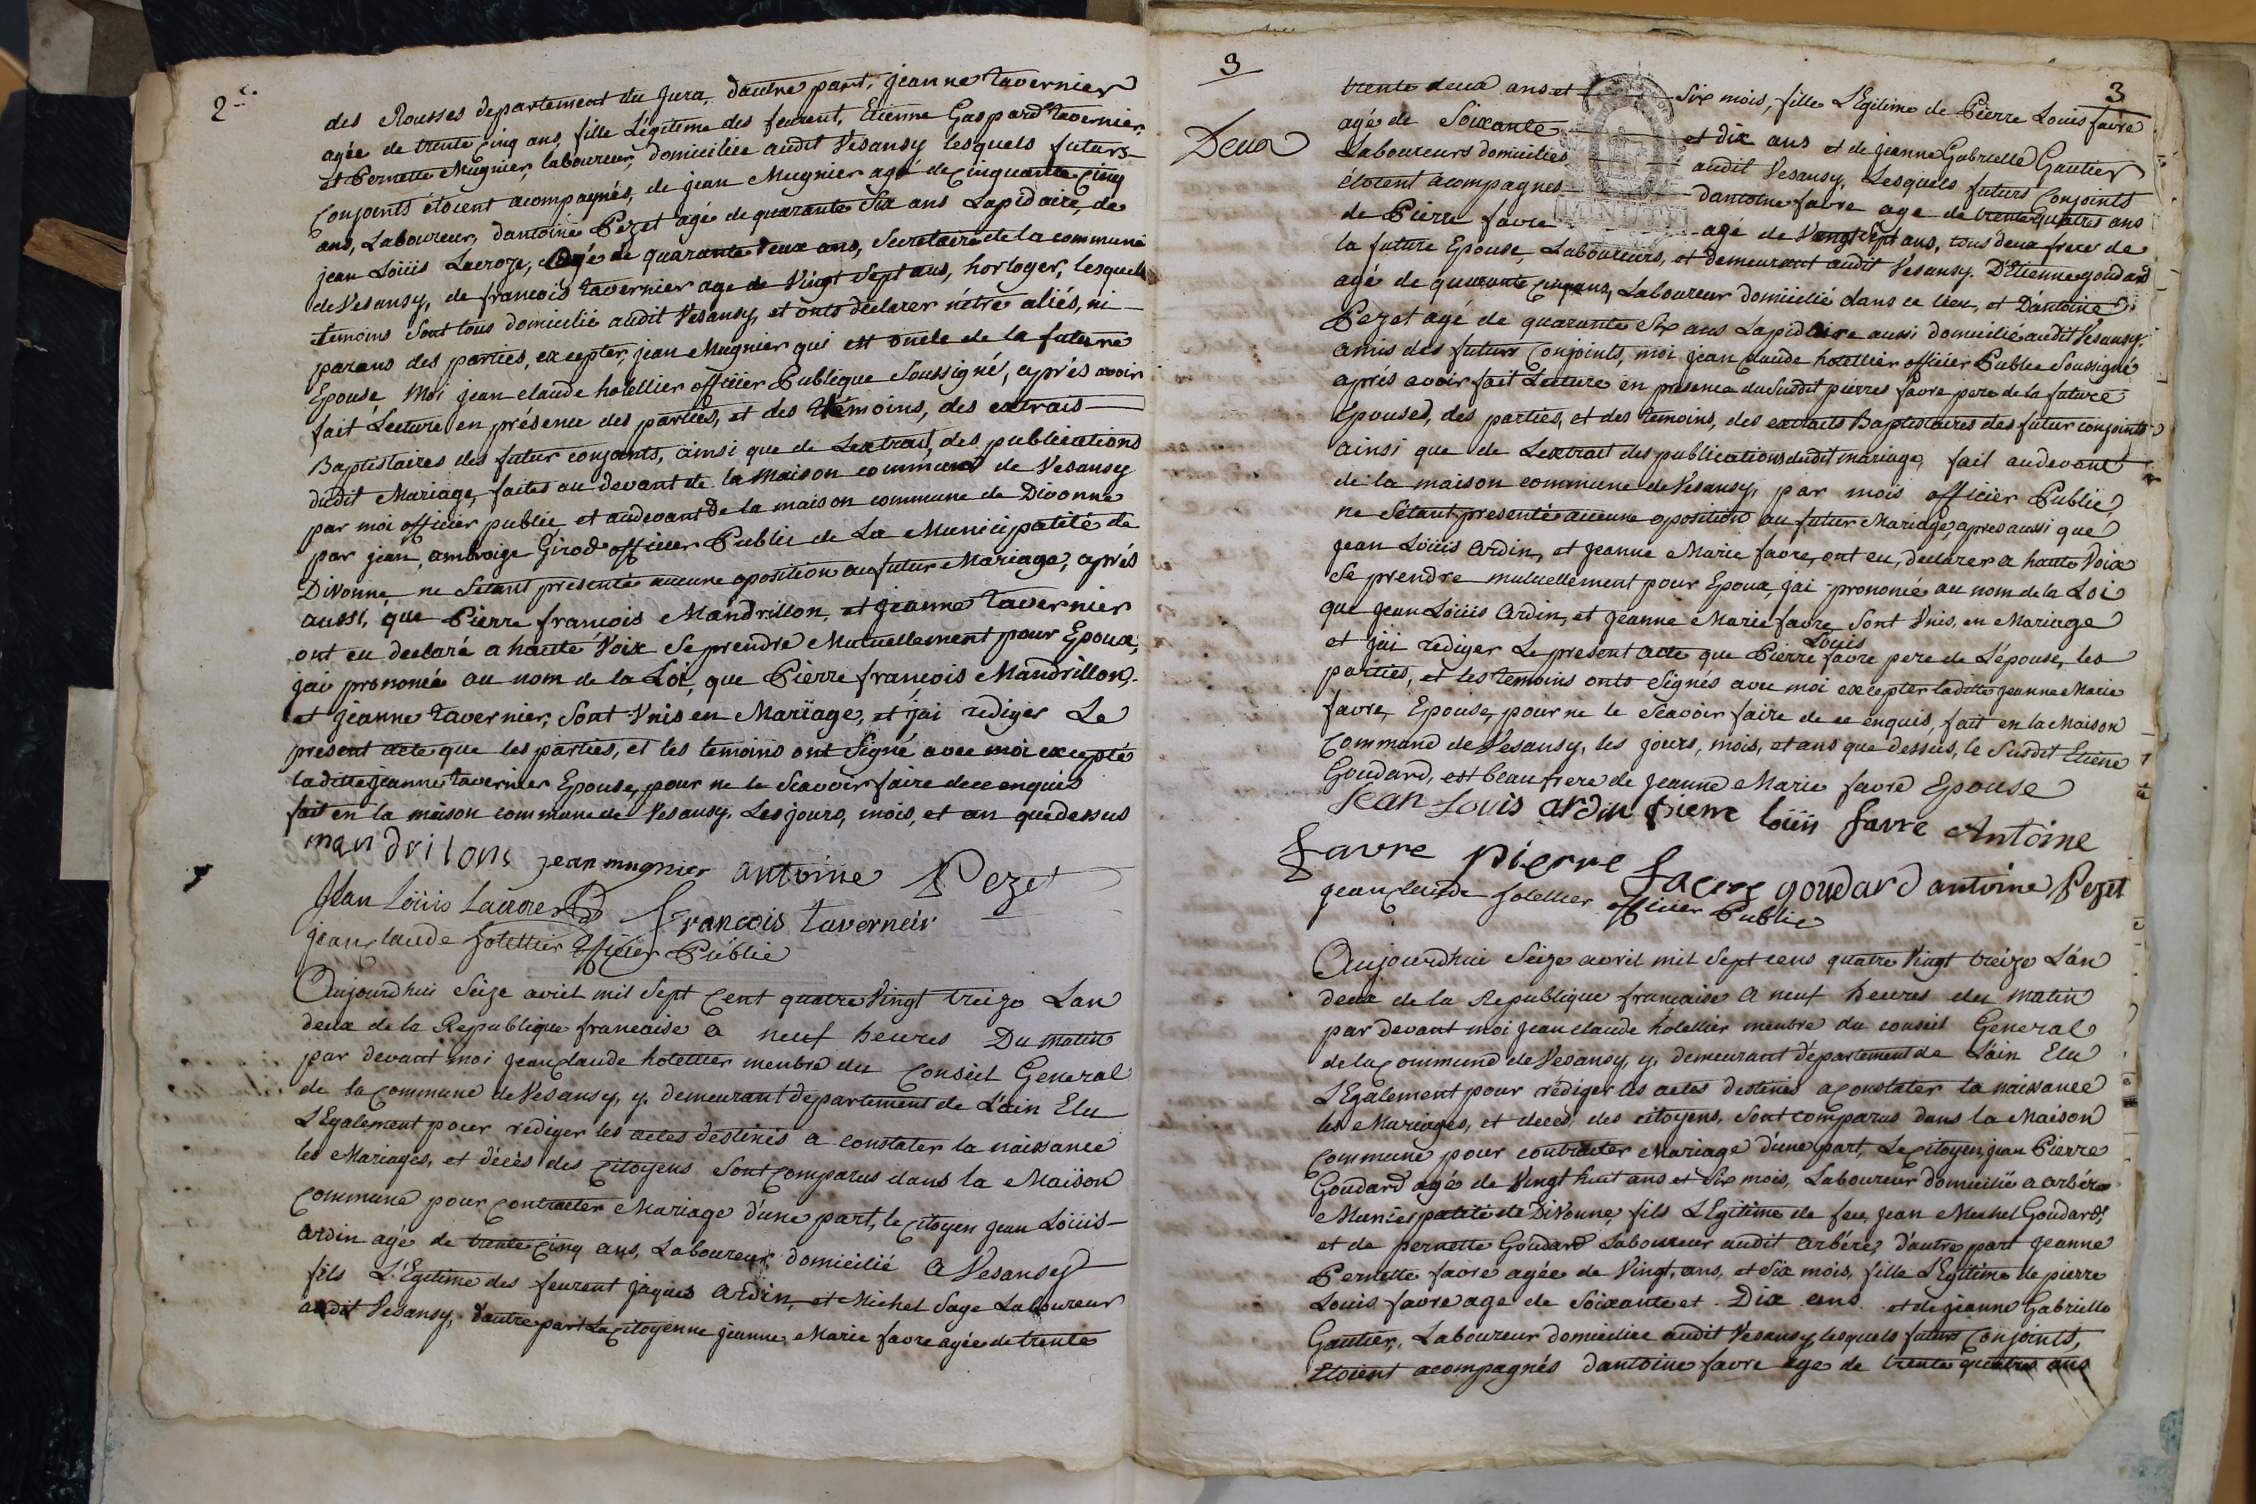 2
des Rousses departement du Jura, d'autre part, jeanne tavernier
agée de trente cinq ans, fille Légitime des feurent, Etienne Gaspard tavernier,
et Pernette Mugnier, laboureur, domiciliée audit Vesansy lesquels futurs
Conjoints étoient acompagnés, de jean Mugnier agé de Cinquante Cinq
ans, Laboureur, dantoine Pezet agé de quarante Six ans Lapidaire, de
jean Loüis Lacroze, agé de quarante deux ans, Secretaire de la commune
de Vesansy, de francois tavernier age de Vingt Sept ans, horloger, lesquels
temoins Sont tous domicilié audit Vesansy, et onts déclarer n'étre aliés, ni
parans des parties, excepter, jean Mugnier qui est oncle de la future
Epouse Moi jean claude hotellier officiier Publique Soussigné, aprés avoir
fait Lecture en présence des parties, et des témoins, des extrais
Baptistaires des futur conjoints, ainsi que de Lextrait, des publications
dudit Mariage, faites au devant de la Maison commune de Vesansy
par moi officiier public et audevant de la maison commune de Divonne
par jean, ambroise Girod officier Public de La Municipalité de
Divonne ne Sétant presentée aucune oposition au futur Mariage, aprés
aussi, que Pierre francois Mandrillon, et jeanne tavernier
ont eu declaré a haute Voix Se prendre Mutuellement pour Epoux,
jai prononcé au nom de la Loi, que Pierre francois Mandrillon,
et jeanne tavernier, Sont Unis en Mariage, et jai rediger Le
present acte que les parties, et les temoins ont Signé avec moi excepté
laditte jeanne tavernier Epouse, pour ne le Scavoir faire de ce enquis
fait en la maison commune de Vesansy, Les jours, mois, et an que dessus
mandrilons jean mugnier antoine Pezet
Jean Loüis Lacroze francois taverneir
jean claude hotellier officiier Public
Aujourdhui Seize avril mil Sept Cent quatre Vingt treize Lan
deux de la Republique francaise a neuf heures Du matin
par devant moi jean claude hotellier menbre du Conseil General
de la Commune de Vesansy, y, demeurant departement de L'ain Elu
LEgalement pour rédiger les actes destinés a constater la naissance
les Mariages, et décès des Citoyens Sont Comparus dans la Maison
Commune pour Contracter Mariage d'une part, le Citoyen jean Loüis
ardin agé de trente Cinq ans, Laboureur domicilié a Vesansy
fils L'Egitime des feurent jaques ardin, et Michel Sage Laboureur
audit Vesansy, d'autre part La Citoyenne jeanne, Marie favre agée de trente
3
3
Deux
trente deux ans et Six mois, fille LEgitime de Pierre Louis favre
agé de Soixante et dix ans et de jeanne Gabrielle Gautier
Laboureurs domiciliés audit Vesansy, Lesquels futurs Conjoints
étoient acompagnes dantoine favre age de trente quatres ans
de Pierre favre agé de Vingt Sept ans, tous deux frere de
la future Epouse, Laboureurs, et demeurant audit Vesansy. D'Etienne goudard
agé de quarante cinq ans, Laboureur domiicilié dans ce lieu, et D'antoine
Pezet agé de quarante Six ans Lapidaire aussi domicilié audit Vesansy
amis des futurs Conjoints, moi jean claude hotellier officiier Public Soussigné
aprés avoir fait Lecture en presence du Susdit pierres favre pere de la future
épouses, des parties, et des temoins, des extraits Baptistaires des futur conjoints
ainsi que de Lextrait des publications dudit mariage, fait audevant
de la maison commune de Vesansy, par mois officiier Public,
ne Sétant presentée aucune oposition au futur Mariage, apres aussi que
jean Loüis ardin, et jeanne Marie favre, ont eu, declarer a haute Voix
Se prendre mutuellement pour Epoux, jai prononcé au nom de la Loi
que jean Loüis ardin, et jeanne Marie favre Sont Unis, en Mariage
et jai rediger Le present acte que Pierre Louis favre pere de L'épouse, les
parties, et les temoins onts Signés avec moi excepter laditte jeanne Marie
favre, Epouse, pour ne le Scavoir faire de ce enquis, fait en la Maison
Commune de Vesansy, les jours, mois, et ans que dessus, le Susdit Etiene
Goudard, est beaufrere de jeanne Marie favre Epouse
Jean Louis ardin pierre loüis favre Antoine
favre pierre favre goudard antoine Pezet
jean claude hotellier officiier Public
Aujourdhui Seize avril mil Sept cens quatre Vingt treize L'an
deux de la Republique francaise a neuf heures du matin
par devant moi jean claude hotellier menbre du conseil General
de la Commune de Vesansy, y, demeurant département de L'ain Elu
LEgalement pour rédiger les actes destinés a Constater la naissance
les Mariages, et deces, des citoyens, Sont comparus dans la Maison
Commune pour contracter Mariage d'une part, Le Citoyen jean Pierre
Goudard agé de Vingt huit ans et Six mois, Laboureur domicilié a arbére
Municipalité de Divonne, fils LEgitime de feu, jean Michel Goudard,
et de pernette Goudard Laboureur audit arbére, d'autre part jeanne
Pernette favre agée de Vingt, ans, et Six mois, fille LEgitime de pierre
Louis favre age de Soixante et Dix ans et de jeanne Gabrielle
Gautier, Laboureur domiciliee audit Vesansy, lesquels futurs Conjoints,
Etoient acompagnés dantoine favre age de trente quatres ans